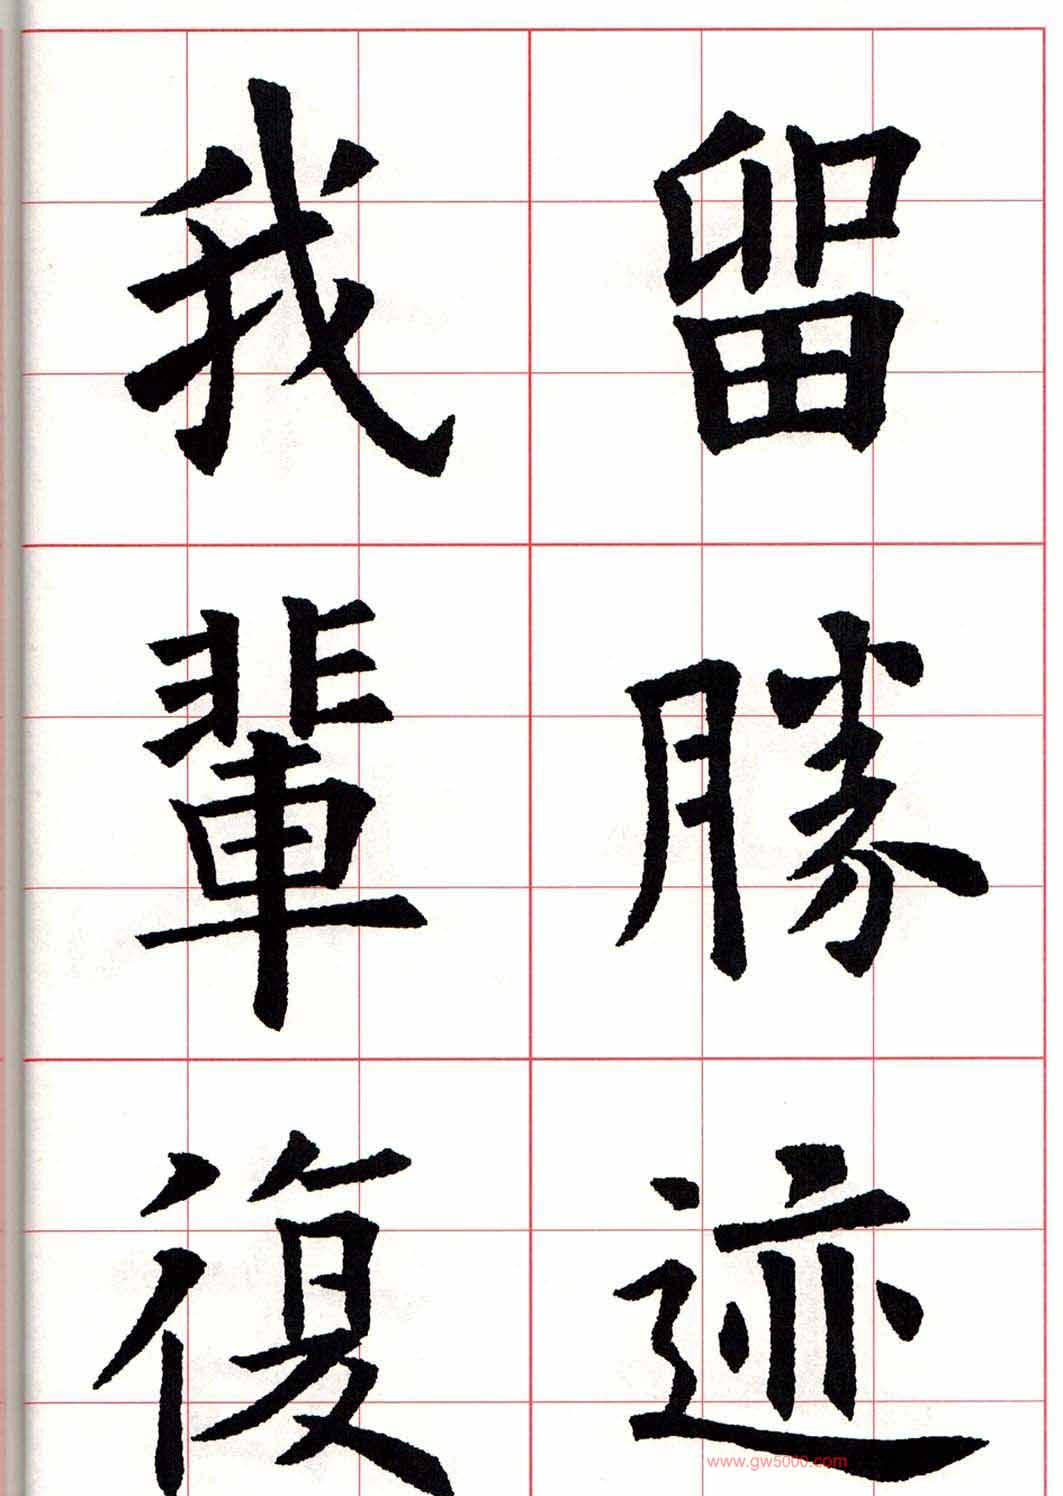 留勝迹
我輩復
www.gw5000.com